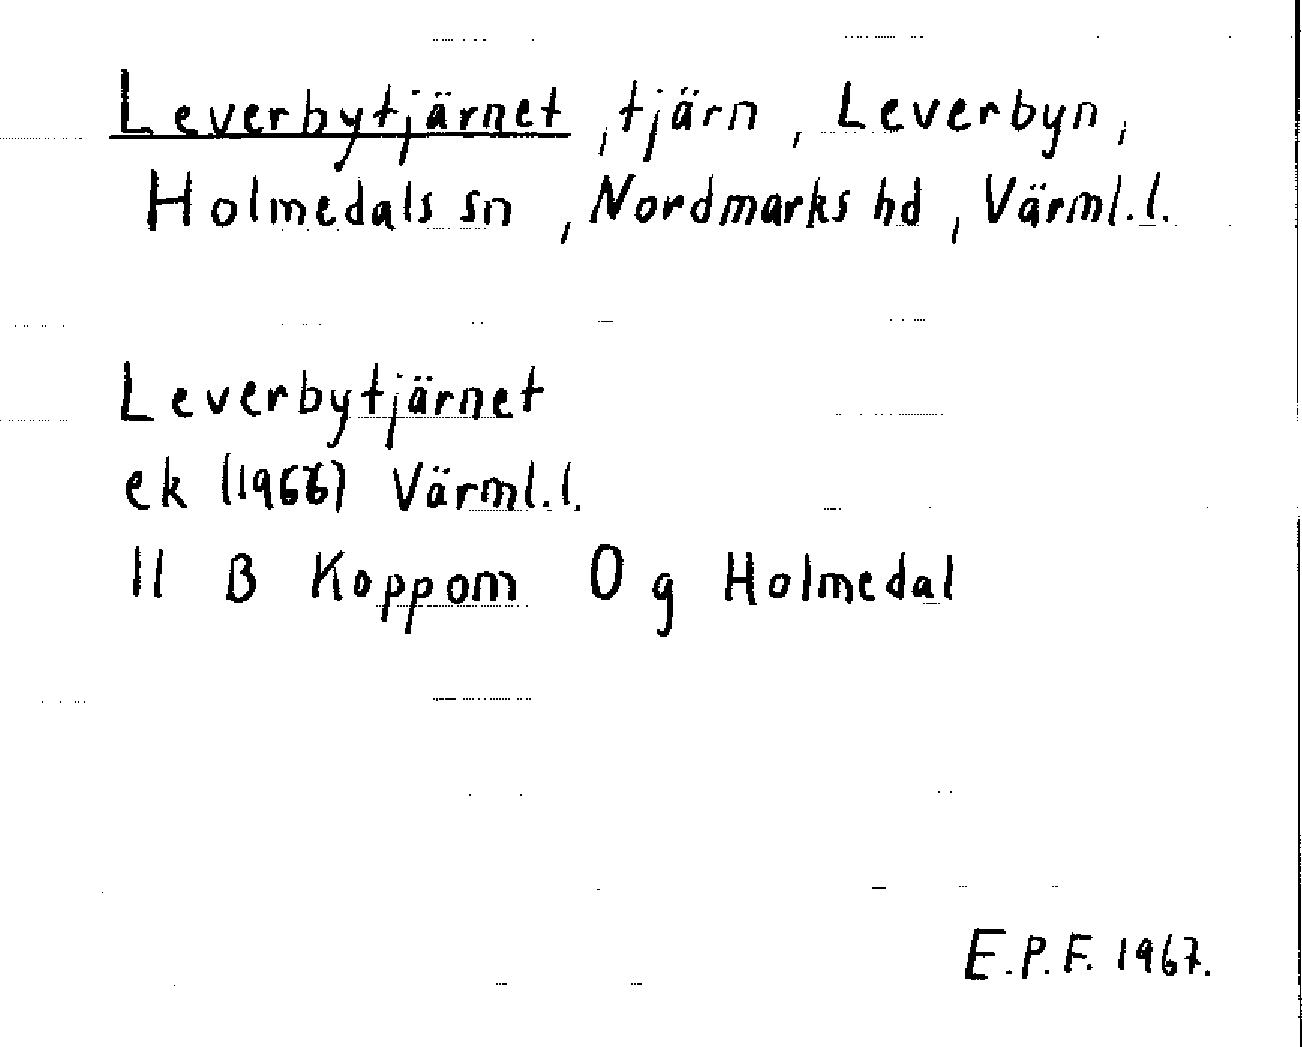 Leverbytjärnet, tjärn, Leverbyn,
Holmedals sn, Nordmarks hd, Värml. l.
Leverbytjärnet
ek (1966) Värml. l.
11 B Koppom 0 g Holmedal
E.P.F. 1967.